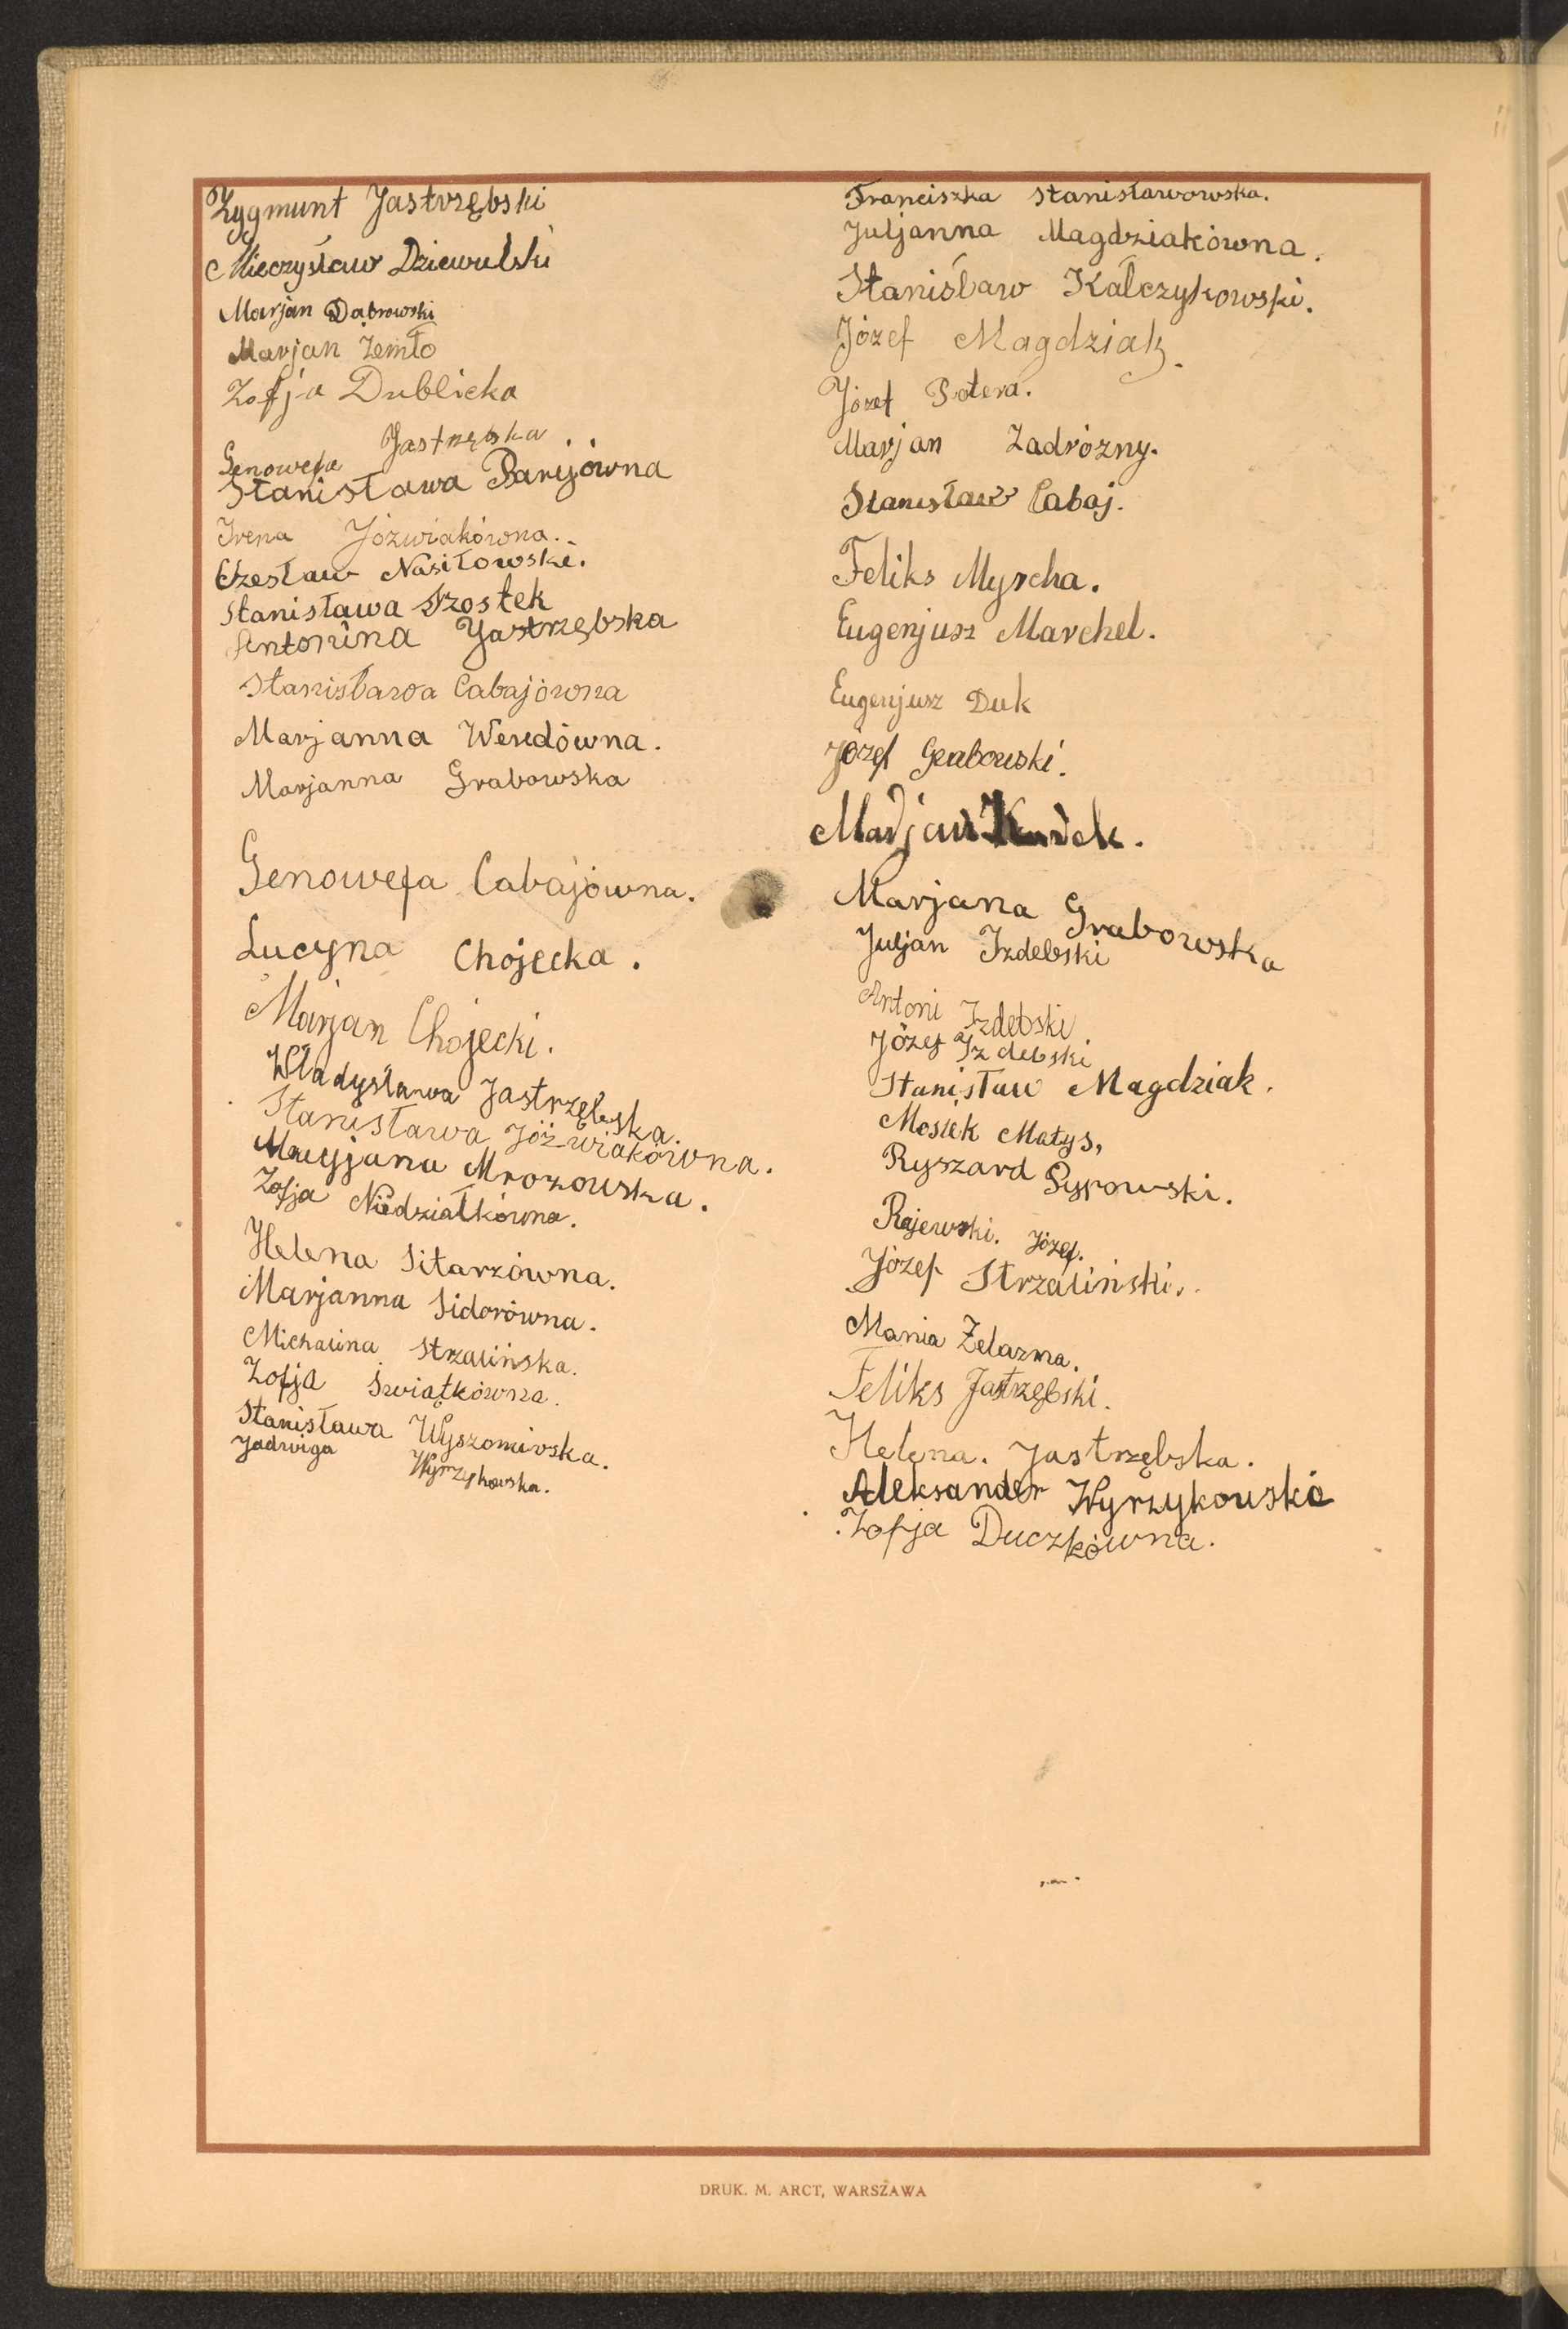 Zygmunt Jastrzębski
Mieczysław Dziewulski
Marjan Dąbrowski
Marjan Żemło
Zofja Dublicka
Genowefa Jastrzębska.
Stanisława Baryjówna
Irena Jóźwiakówna.
Czesław Nasiłowski.
Stanisława Szostek
Antonina Jastrzębska
Stanisława Cabajówna
Marjanna Weredówna.
Marjanna Grabowska
Genowefa Cabajówna.
Lucyna Chojecka.
Marjan Chojecki.
Władysława Jastrzębska.
Stanisława Jóźwiakówna.
Maryjana Mrozowska.
Zofja Niedziałkówna.
Helena Sitarzówna.
Marjanna Sidorówna.
Michalina Strzalińska.
Zofja Świątkówna.
Stanisława Wyszomirska.
Jadwiga Wyrzykowska.
Franciszka Stanisławowska.
Juljanna Magdziakówna.
Stanisław Kałczykowski.
Józef Magdziak.
Józef Potera.
Marjan Zadróżny.
Stanisław Cabaj.
Feliks Myrcha.
Eugenjusz Marchel.
Eugenjusz Duk
Józef Grabowski.
Marjan Kurek.
Marjana Grabowska
Juljan Izdebski
Antoni Izdebski
Józef Izdebski
Stanisław Magdziak.
Mosiek Matys,
Ryszard Pyrowski.
Rajewski. Józef.
Józef Strzaliński.
Mania Żelazna.
Feliks Jastrzębski.
Helena. Jastrzębska.
Aleksander Wyrzykowski
Zofja Duczkówna.
DRUK. M. ARCT, WARSZAWA